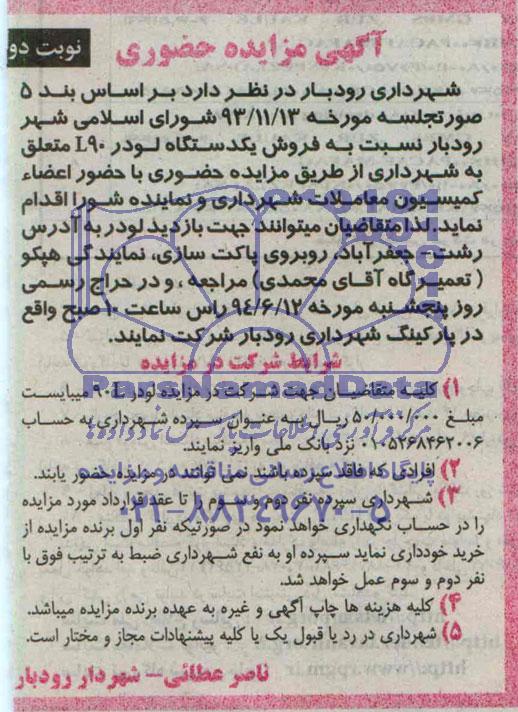 آگهی مزایده حضوری
نوبت دو
شهرداری رودبار در نظر دارد بر اساس بند ۵
صورتجلسه مورخه ۹۳/۱۱/۱۳ شورای اسلامی شهر
رودبار نسبت به فروش یکدستگاه لودر L۹۰ متعلق
به شهرداری از طریق مزایده حضوری با حضور اعضاء
کمیسیون معاملات شهرداری و نماینده شورا اقدام
نماید. لذا متقاضیان میتوانند جهت بازدید لودر به آدرس
رشت- جعفرآباد، روبروی پاکت سازی، نمایندگی هپکو
( تعمیرگاه آقای محمدی) مراجعه، و در حراج رسمی
روز پنجشنبه مورخه ۹۴/۶/۱۲ راس ساعت ۱۰ صبح واقع
در پارکینگ شهرداری رودبار شرکت نمایند.
شرایط شرکت در مزایده
۱) کلیه متقاضیان جهت شرکت در مزایده لودر ۹۰L میبایست
مبلغ ۵۰/۰۰۰/۰۰۰ ریال به عنوان سپرده شهرداری به حساب
۰۱۰۵۲۶۸۴۶۲۰۰۶ نزد بانک ملی واریز نمایند.
۲) افرادی که فاقد سپرده باشند نمی توانند در مزایده حضور یابند.
۳) شهرداری سپرده نفر دوم و سوم را تا عقد قرارداد مورد مزایده
را در حساب نگهداری خواهد نمود در صورتیکه نفر اول برنده مزایده از
خرید خودداری نماید سپرده او به نفع شهرداری ضبط به ترتیب فوق با
نفر دوم و سوم عمل خواهد شد.
۴) کلیه هزینه ها چاپ آگهی و غیره به عهده برنده مزایده میباشد.
۵) شهرداری در رد یا قبول یک یا کلیه پیشنهادات مجاز و مختار است.
ناصر عطائی- شهردار رودبار
ParsNamadData
مرکز فرآوری اطلاعات پارس نماد داده ها
پایگاه اطلاع رسانی مناقصه و مزایده
۰۲۱-۸۸۳۴۹۶۷۰-۵